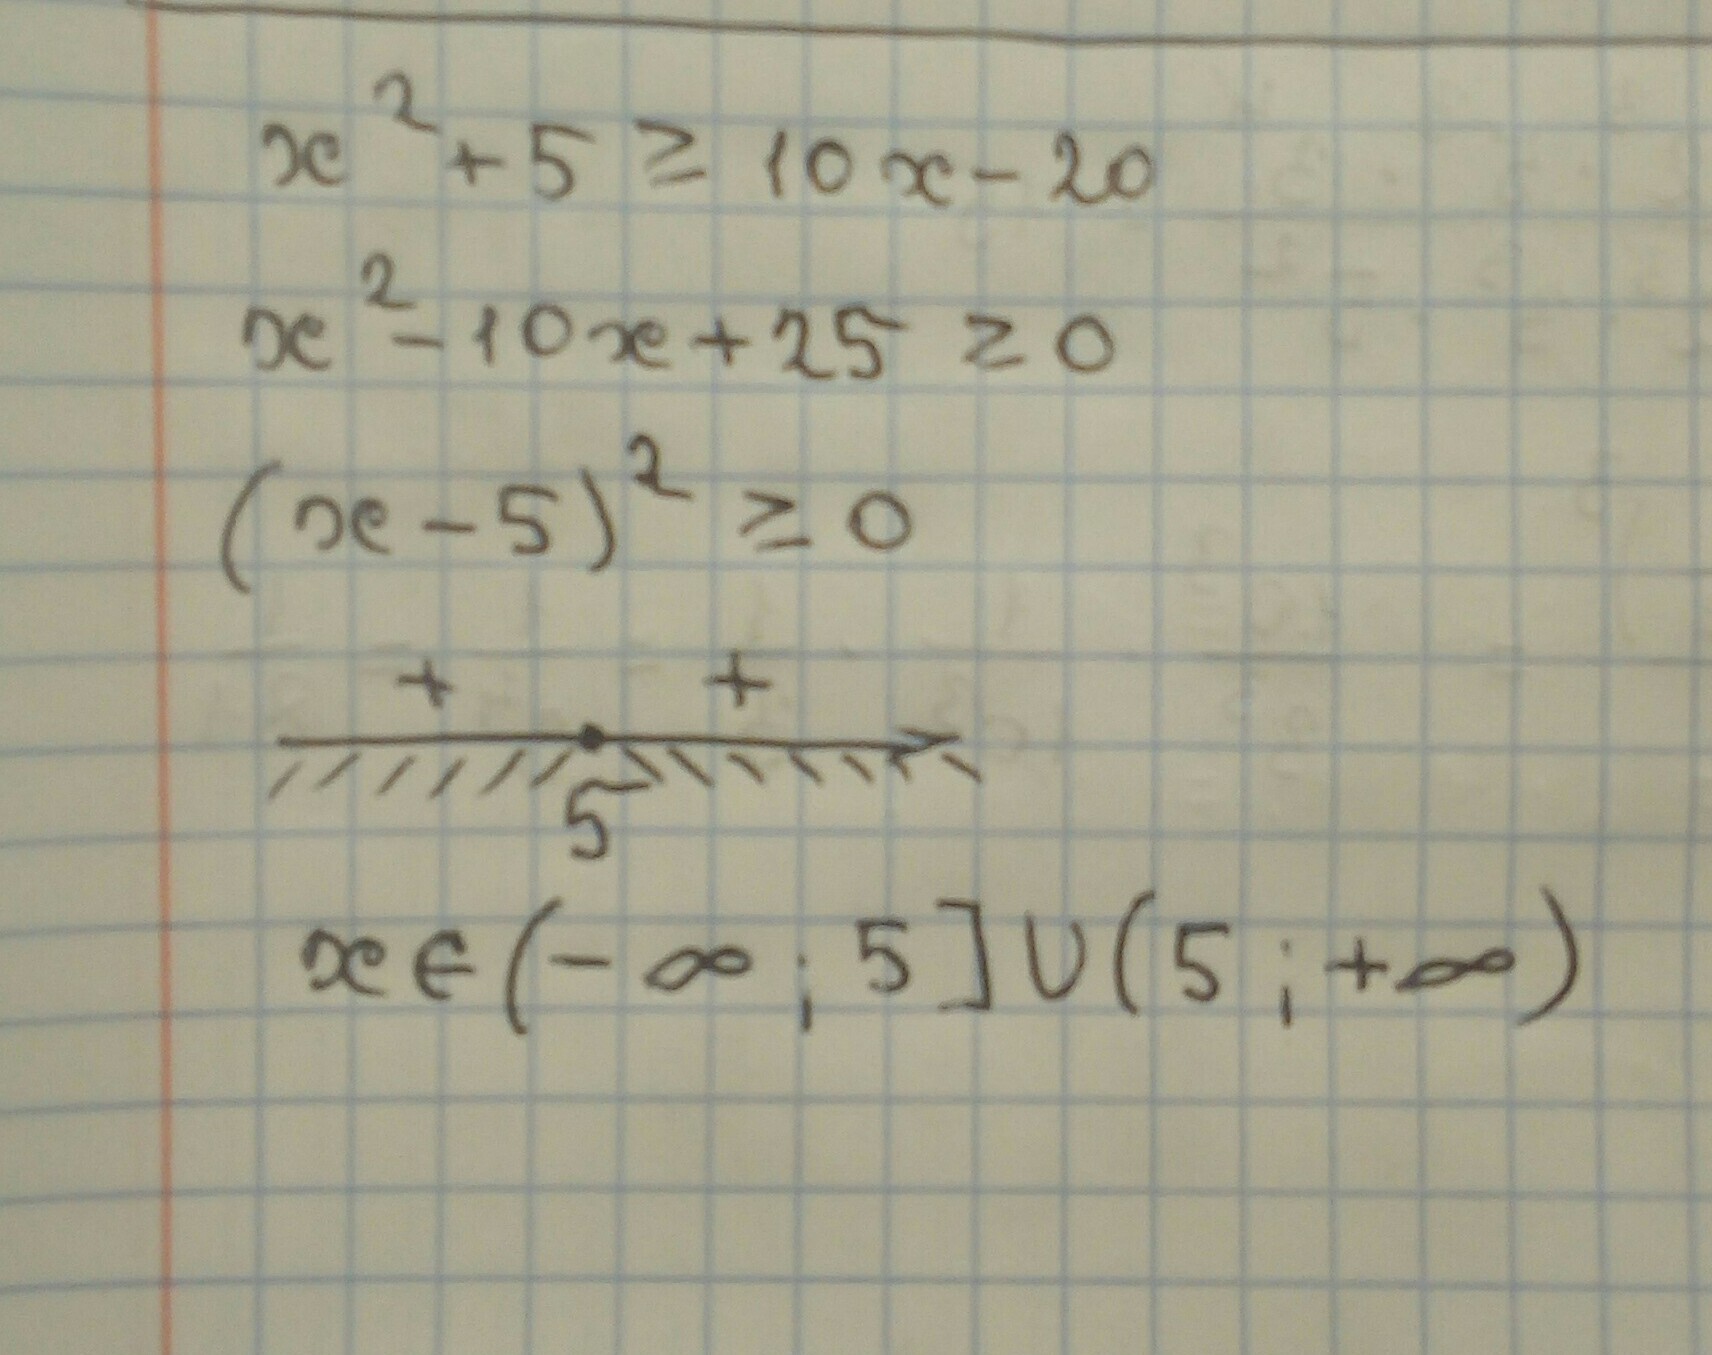 x² + 5 ≥ 10x - 20
x² - 10x + 25 ≥ 0
(x - 5)² ≥ 0
+ +
5
x ∈ (-∞; 5] ∪ (5; +∞)